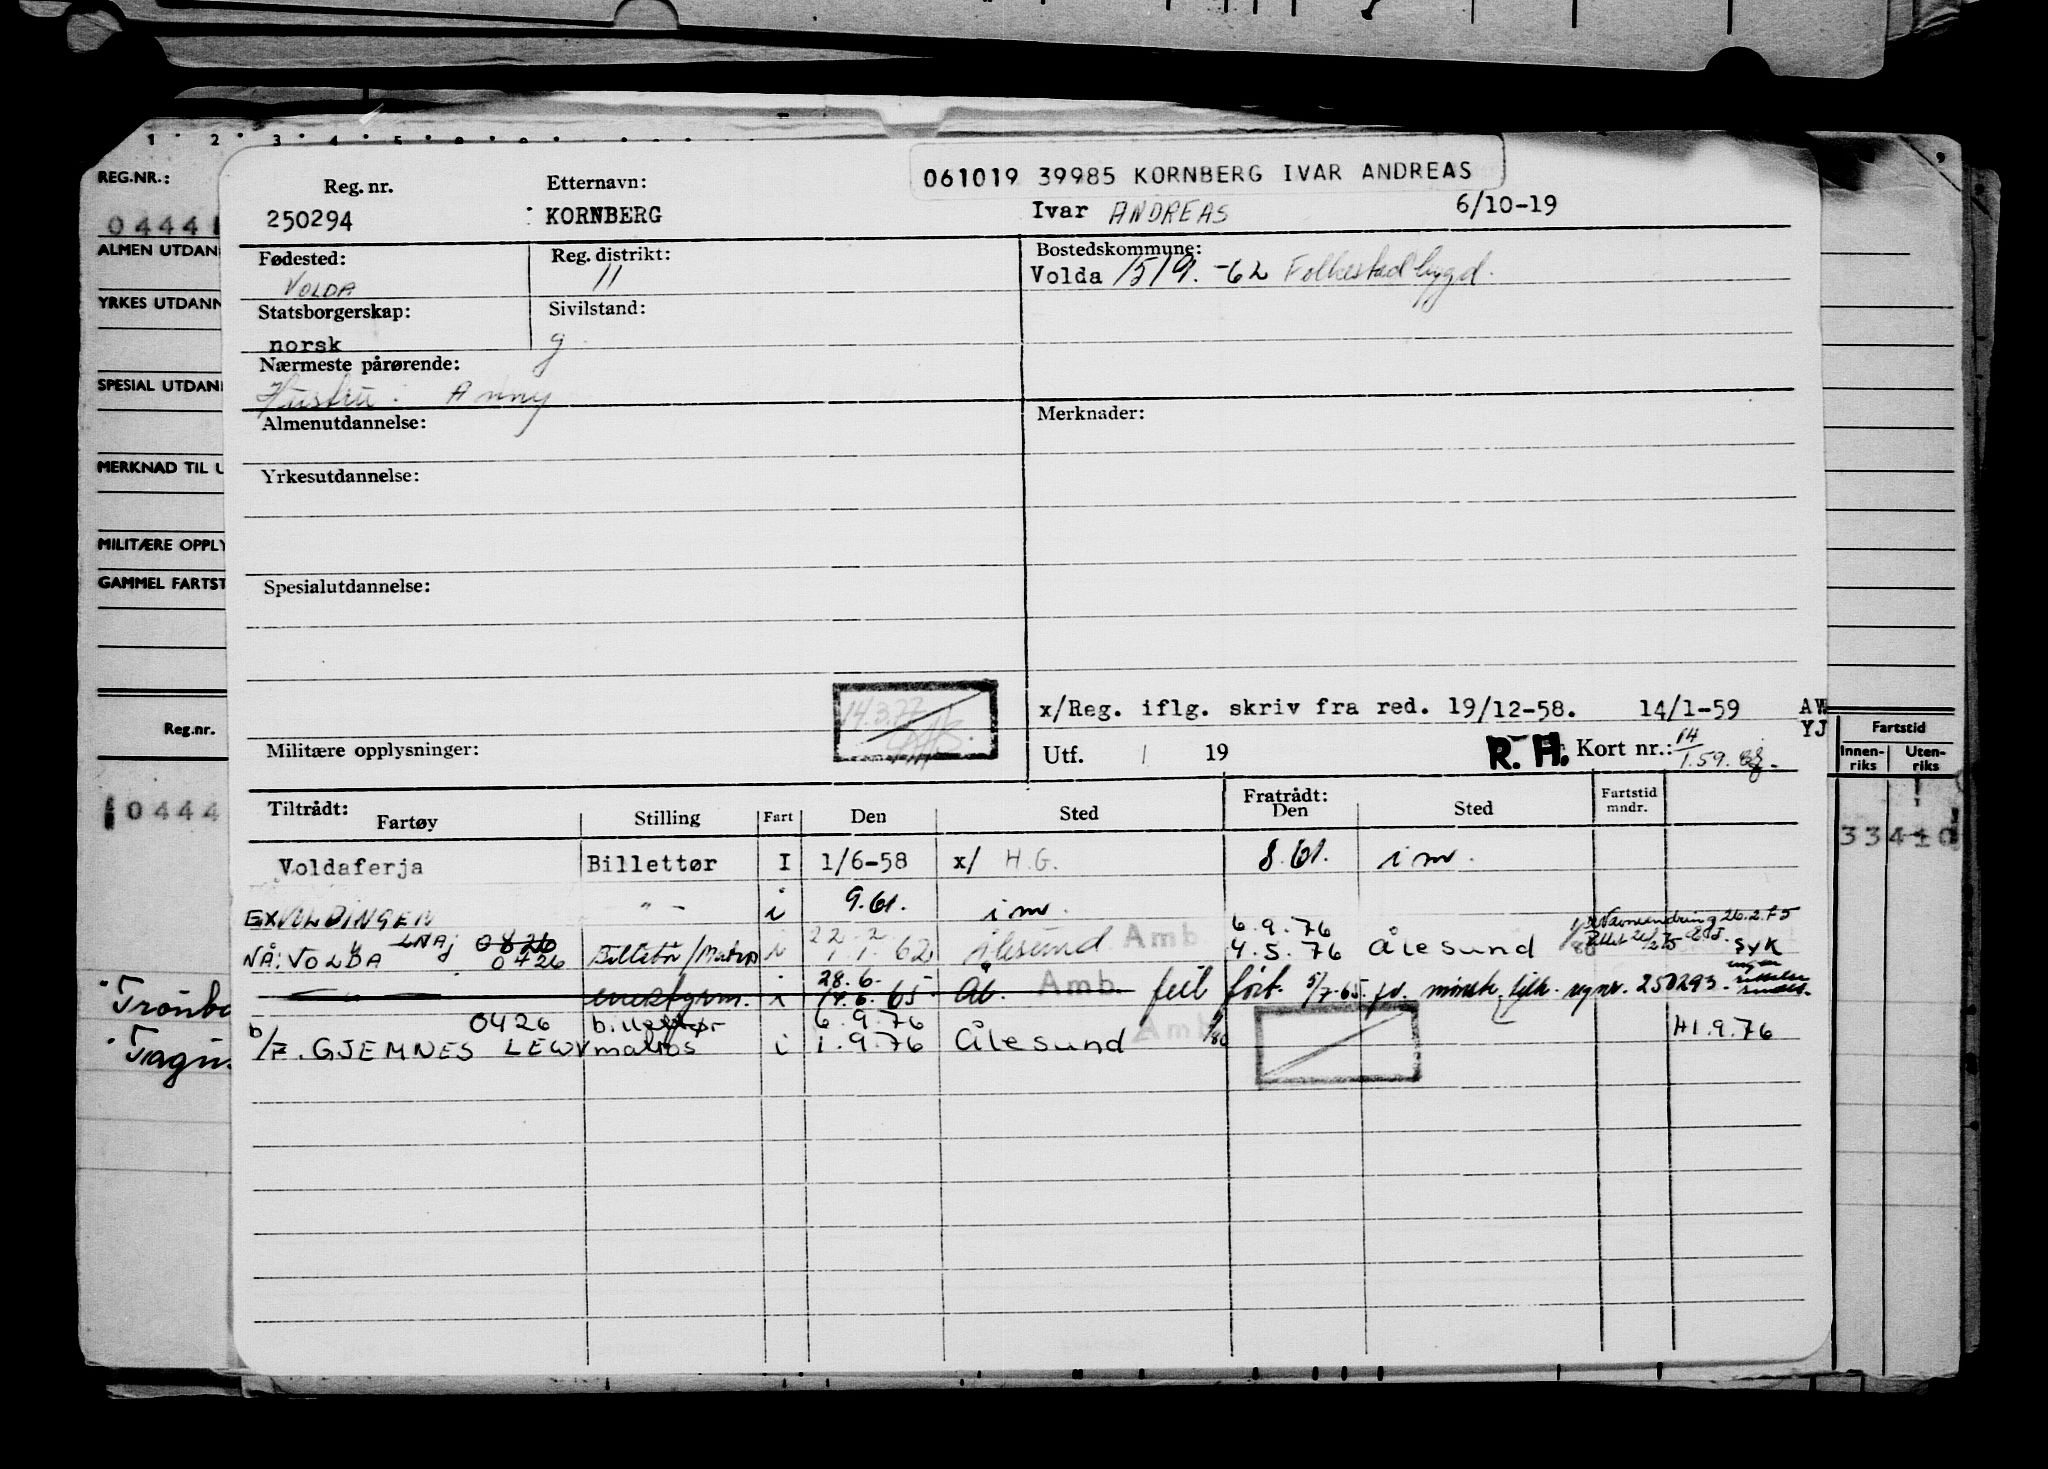 061019 39985 KORNBERG IVAR ANDREAS
REG.NR.:
Reg. nr.
Etternavn:
04441
250294
KORNBERG
Ivar ANDREAS
6/10-19
ALMEN UTDAN
Fødested:
Reg. distrikt:
Bostedskommune:
VOLDA
11
Volda 1519. -62 Folkestadbygd.
YRKES UTDANN
Statsborgerskap:
Sivilstand:
norsk
g
Nærmeste pårørende:
SPESIAL UTDANI
Hustru: Anny
Almenutdannelse:
Merknader:
MERKNAD TIL U
Yrkesutdannelse:
MILITÆRE OPPLY
GAMMEL FARTST
Spesialutdannelse:
14.3.77
x/Reg. iflg. skriv fra red. 19/12-58. 14/1-59 AW
YJ
Reg.nr.
Fartstid
Militære opplysninger:
Utf. / 19
R. H. Kort nr.: 14/1.59.
Innen-riks
Uten-riks
Tiltrådt:
Fartøy
Stilling
Fart
Den
Sted
Fratrådt:
Den
Sted
Fartstid mndr.
0444
3340
Voldaferja Billettør I 1/6-58 x/ H.G. 8.61. i m.
EX VOLDINGEN " - i 9.61. i m.
22.2 6.9.76 Navneendring 26.2.75
NÅ: VOLDA LNAJ 0826 0426 Billetør/Matros i 1.1.62 Ålesund Amb 4.5.76 Ålesund SYK
28.6.
14.6.65 Ål. Amb. feil ført. 5/7-65. reg nr. 250293.
0426 billettør 6.9.76
b/F. GJEMNES LEWV matros i 1.9.76 Ålesund Amb 9/80 H1.9.76